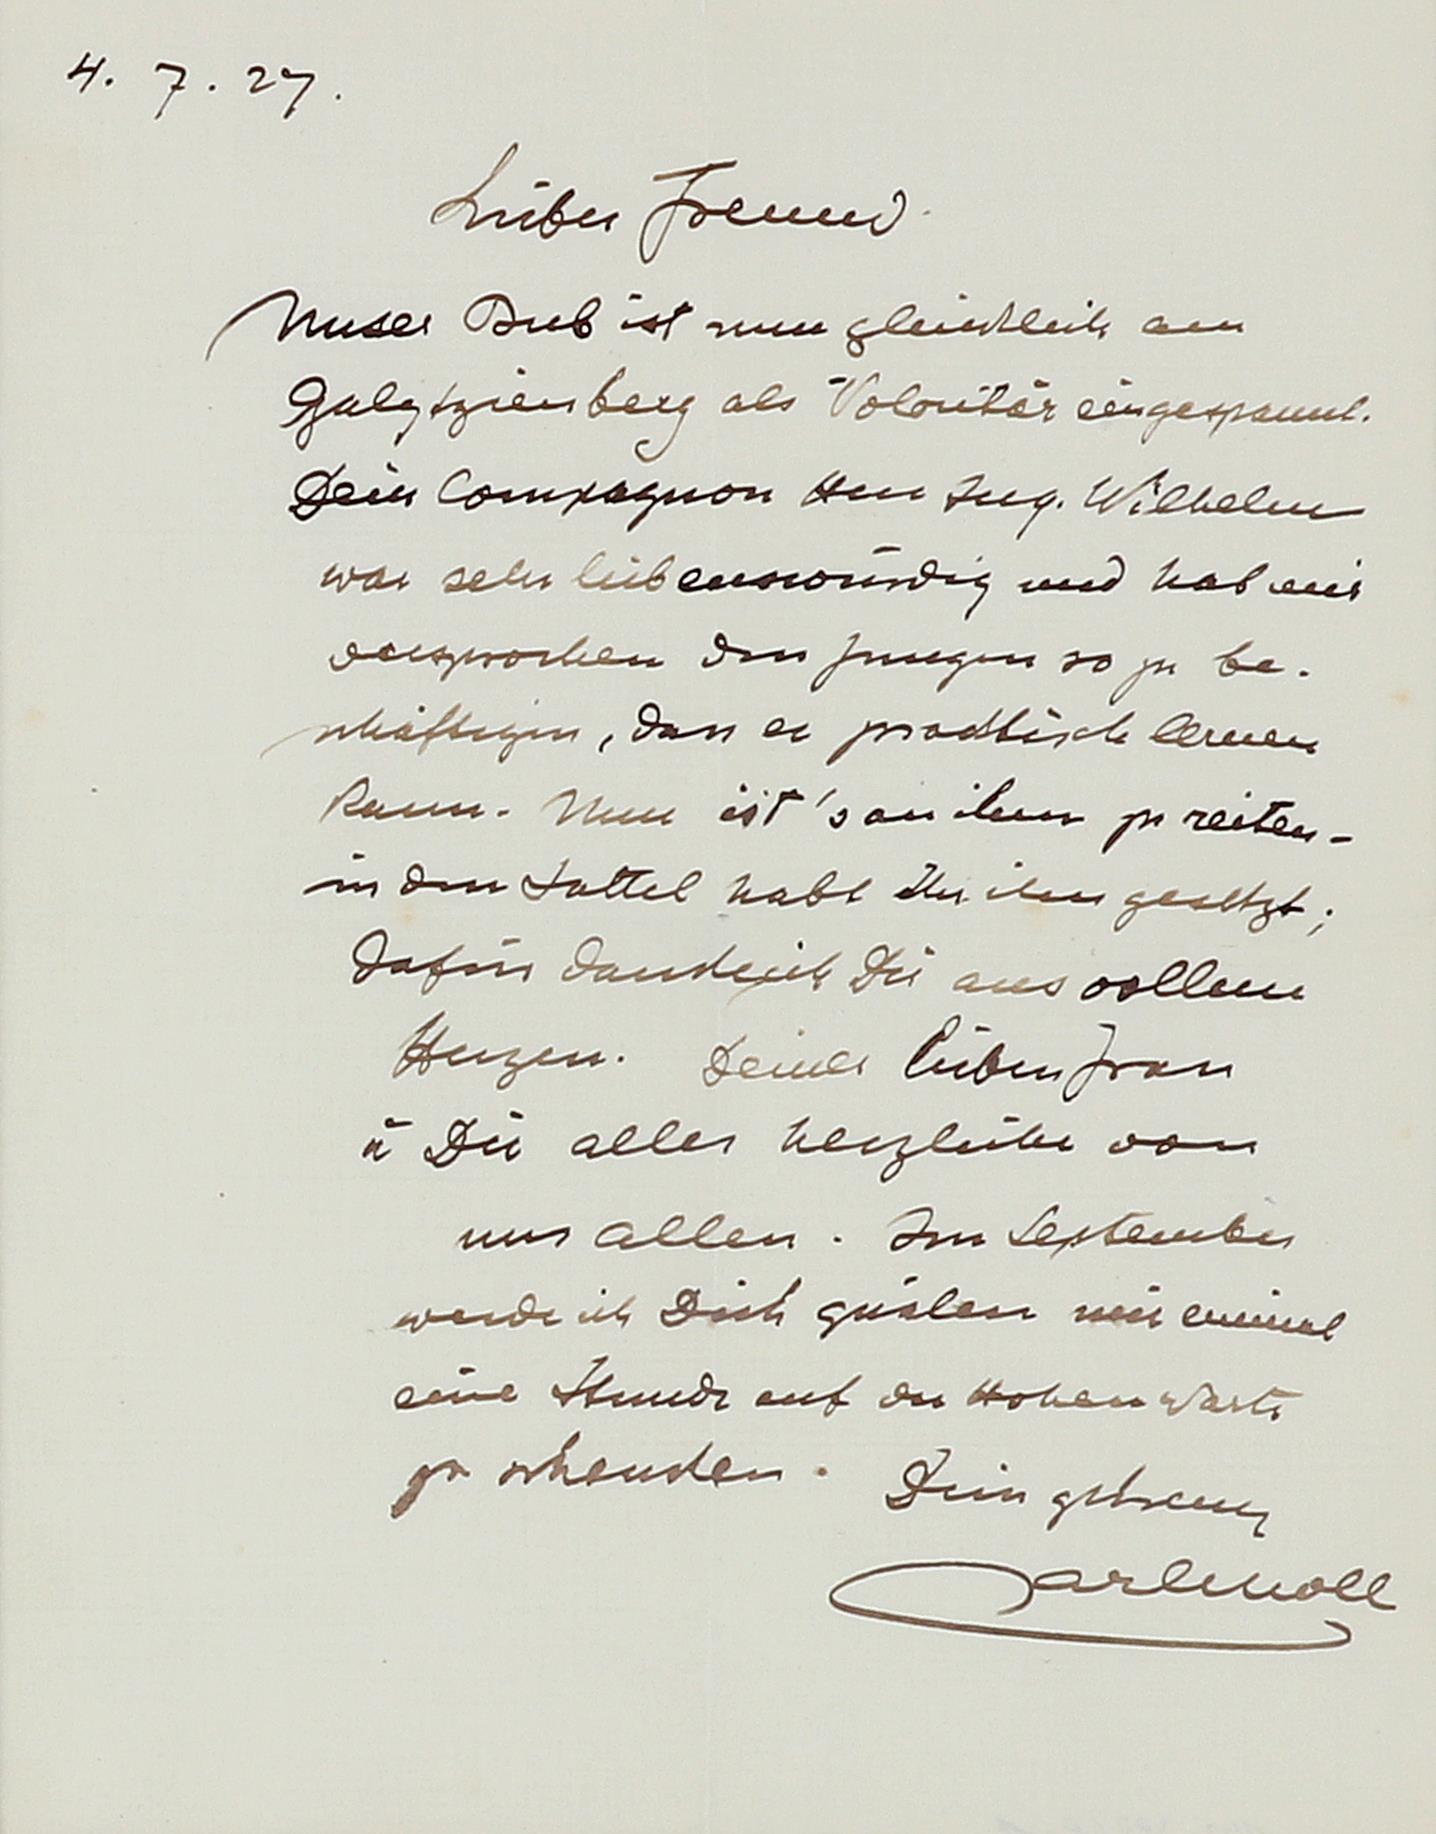 4. 7. 27.
Lieber Freund.
Unser Bub ist nun glücklich am
Galytzienberg als Volontär eingespannt.
Dein Compagnon Herr Ing. Wilhelm
war sehr liebenswürdig und hat mir
versprochen den Jungen so zu be-
schäftigen, dass er practisch lernen
kann. Nun ist's an ihm zu reiten –
in den Sattel habt Ihr ihn gesetzt;
dafür danke ich Dir aus vollem
Herzen. Deiner lieben Frau
u Dir alles herzliche von
uns allen. Im September
werde ich Dich quälen mir einmal
eine Stunde auf der Hohen Warte
zu schenken. Dein getreuer
Carl Moll